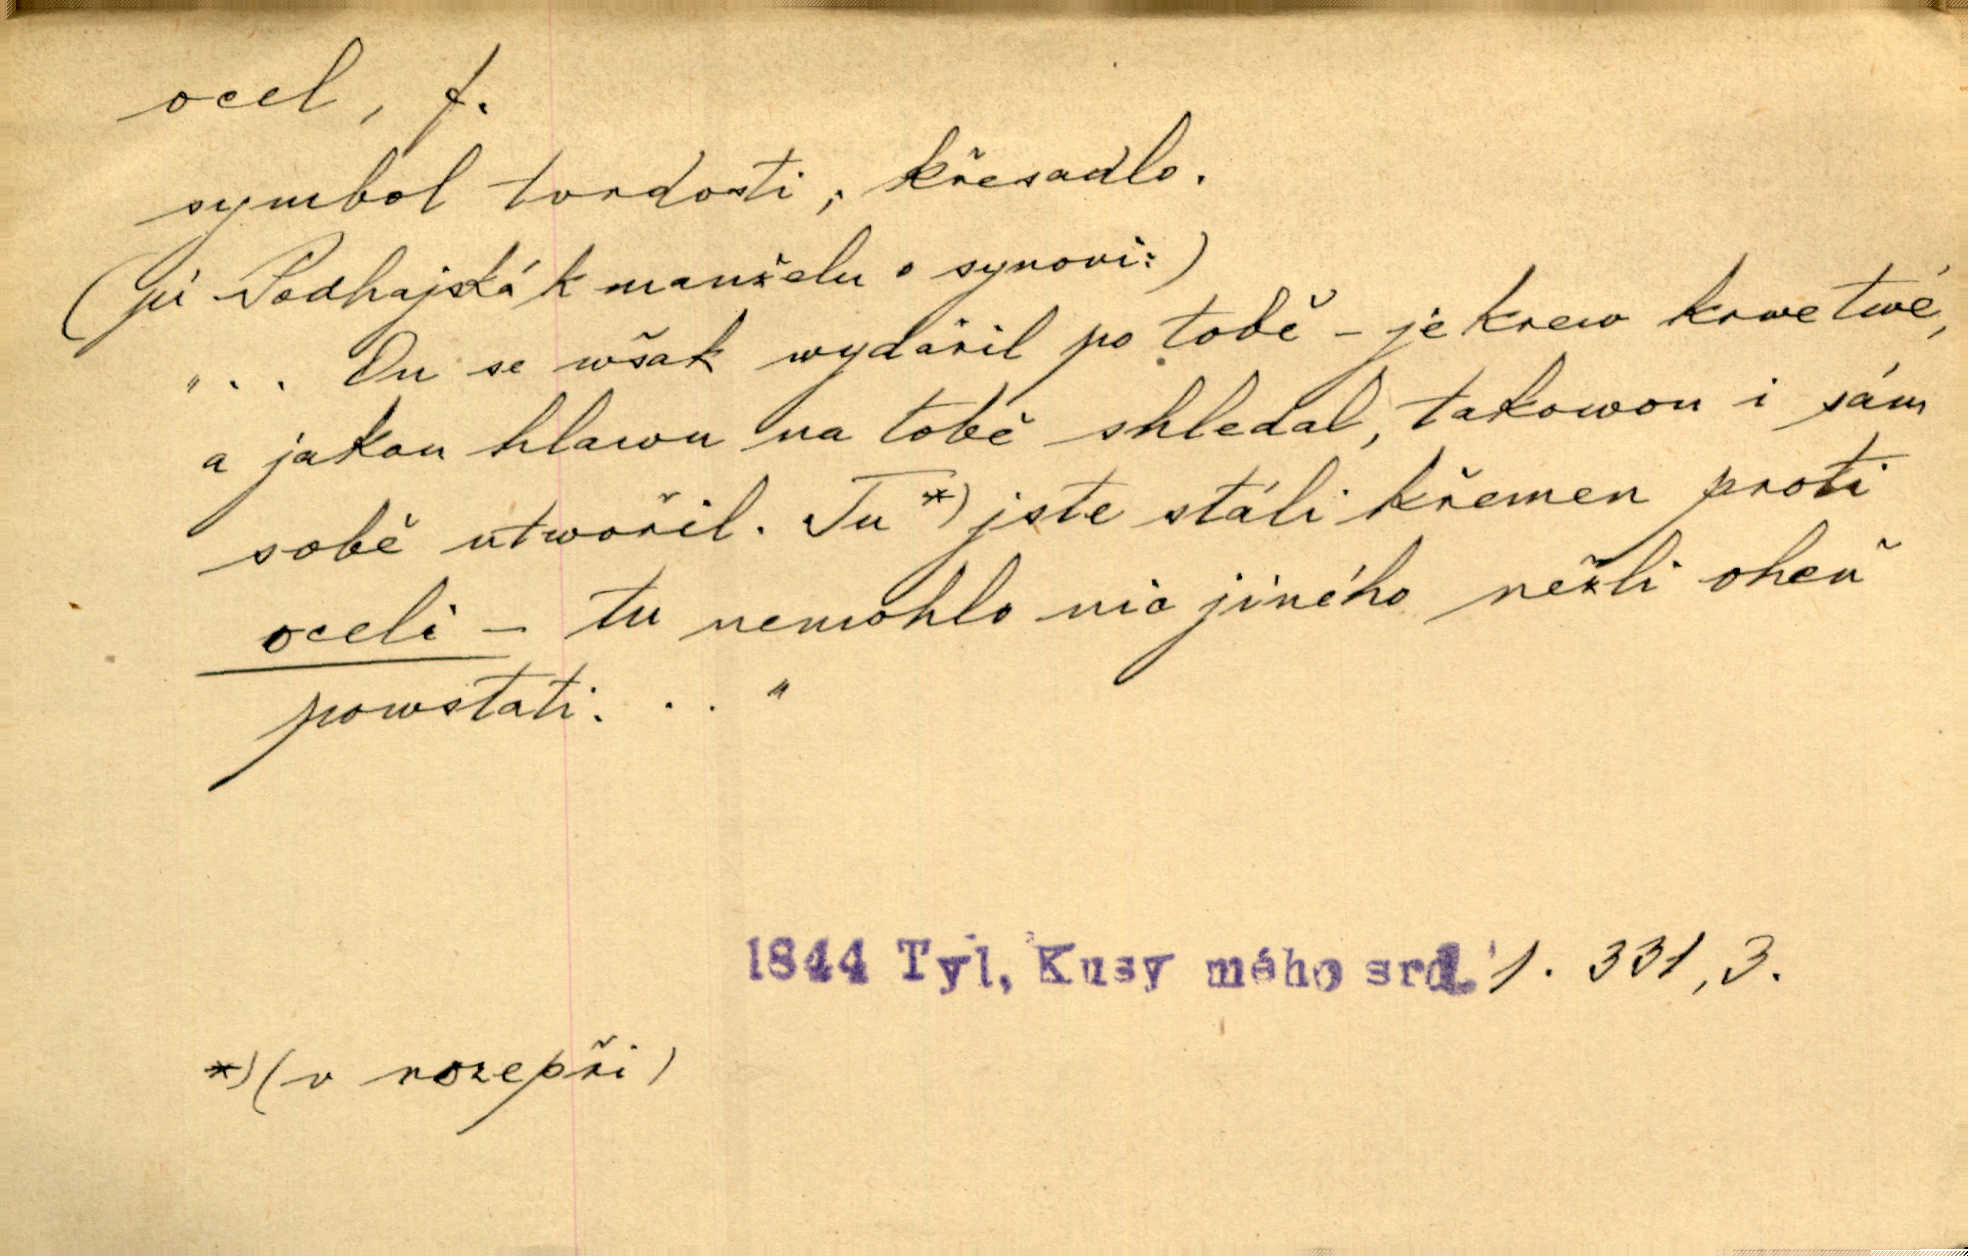 ocel, f.
symbol tvrdosti; křesadlo.
(pí Podhajská k manželu o synovi:)
„... On se wšak wydařil po tobě – je krew krwe twé,
a jakou hlawu na tobě shledal, takowou i sám
sobě utwořil. Tu *) jste stáli křemen proti
oceli – tu nemohlo nic jiného nežli oheň
powstati. . . "
1844 Tyl, Kusy mého srd. 1. 331, 3.
*) (v rozepři)